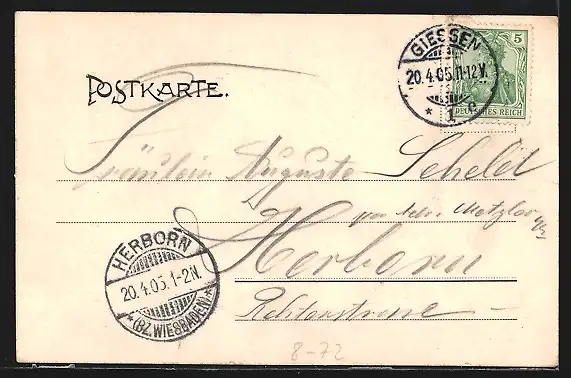 POSTKARTE.
GIESSEN
20.4.05.11-12V.
* 1 c
5
DEUTSCHES REICH
Fräulein Auguste Scheld
Herborn
HERBORN
20.4.05.1-2N.
* (BZ.WIESBADEN)
8-72